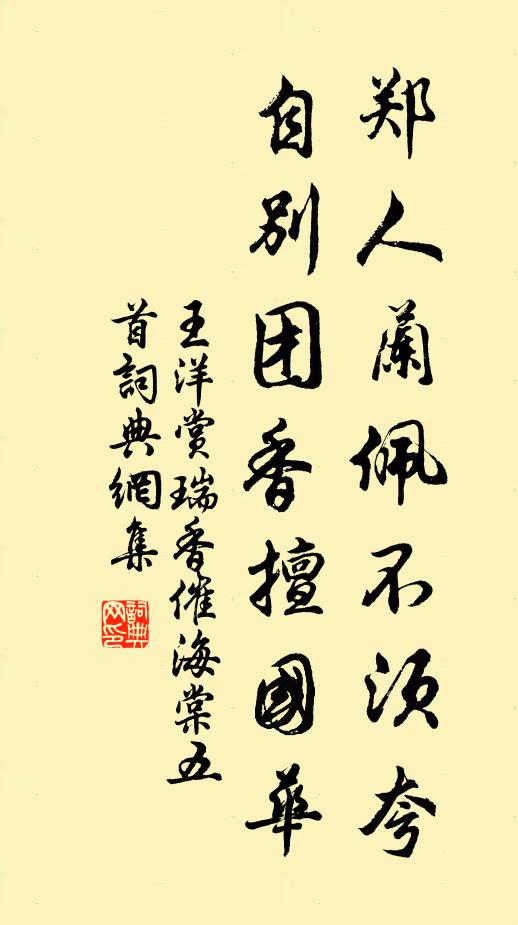 郑人蘭佩不须夸
自别团香擅國華
王洋赏瑞香催海棠五
首詞典網集
詞典网印